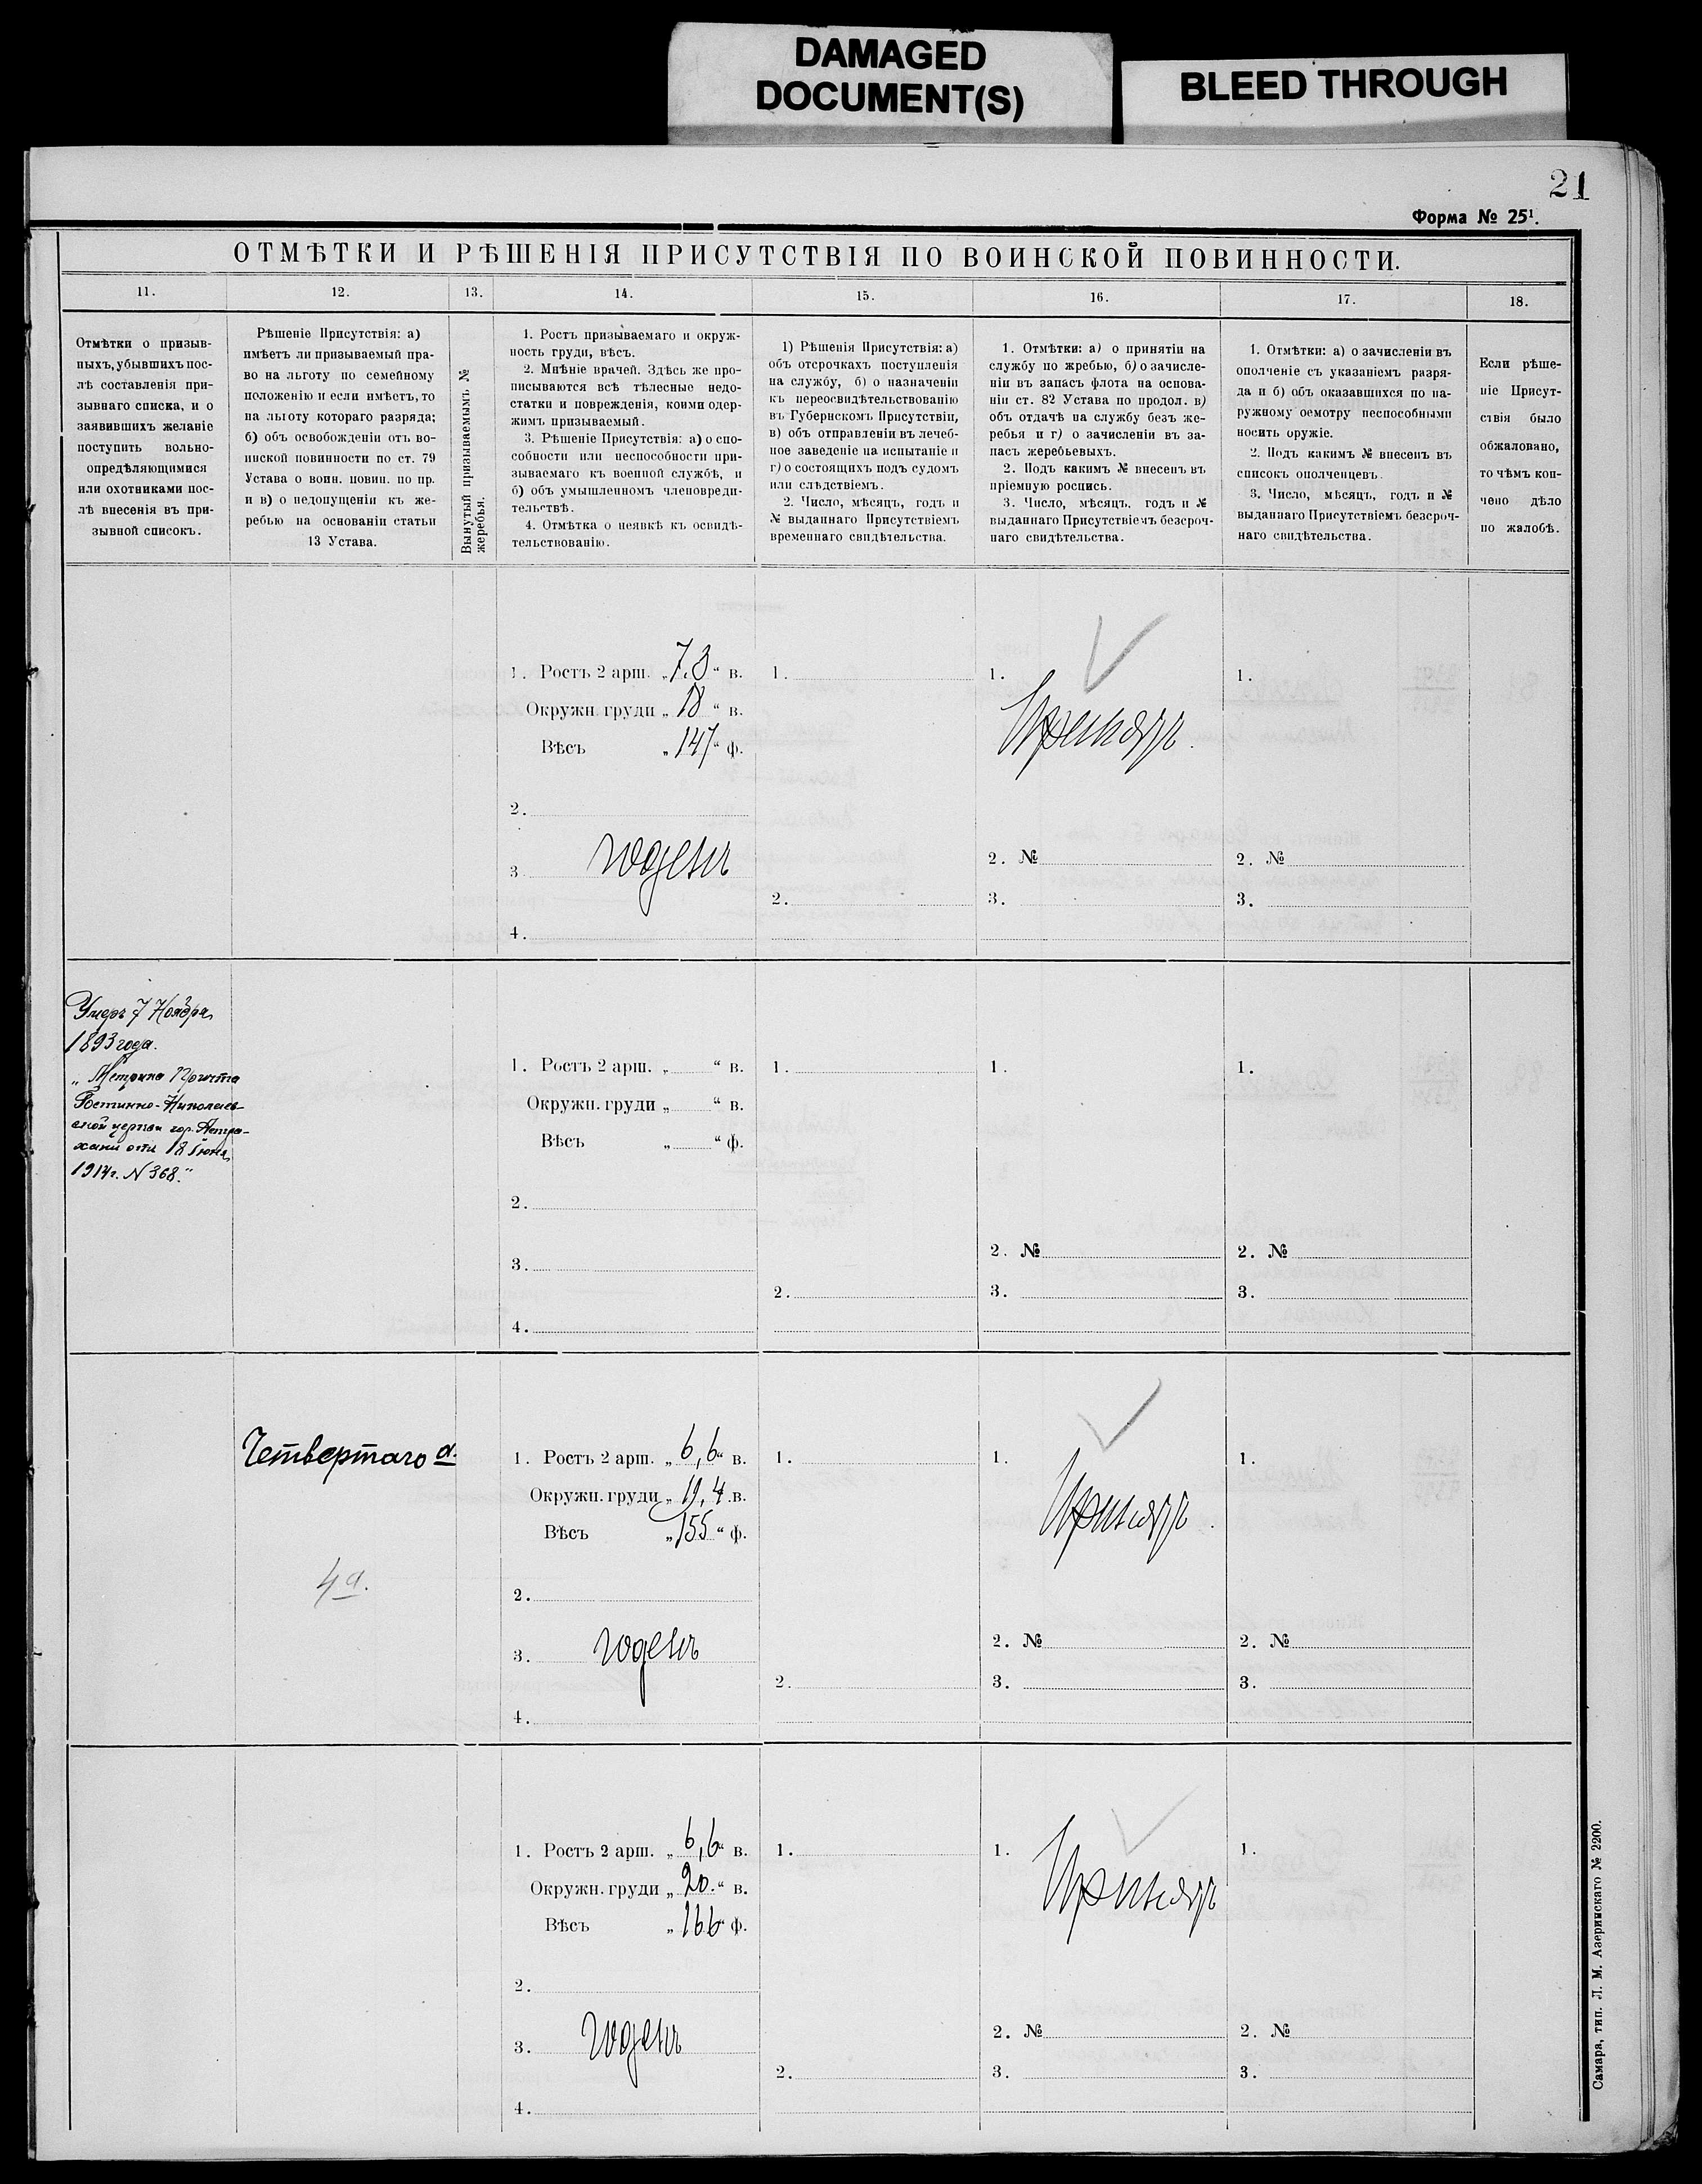 DAMAGED
DOCUMENT(S)
BLEED THROUGH
21
Форма № 25¹.
ОТМѢТКИ И РѢШЕНІЯ ПРИСУТСТВІЯ ПО ВОИНСКОЙ ПОВИННОСТИ.
11.
12.
13.
14.
15.
16.
17.
18.
Отмѣтки о призыв-
ныхъ, убывшихъ пос-
лѣ составленія при-
зывнаго списка, и о
заявившихъ желаніе
поступить вольно-
опредѣляющимися
или охотниками пос-
лѣ внесенія въ при-
зывной списокъ.
Рѣшеніе Присутствія: а)
имѣетъ ли призываемый пра-
во на льготу по семейному
положенію и если имѣетъ, то
на льготу котораго разряда;
б) объ освобожденіи отъ во-
инской повинности по ст. 79
Устава о воин. повин. по пр.
и в) о недопущеніи къ же-
ребью на основаніи статьи
13 Устава.
Вынутый призываемымъ №
жеребья.
1. Ростъ призываемаго и окруж-
ность груди, вѣсъ.
2. Мнѣніе врачей. Здѣсь же про-
писываются всѣ тѣлесные недо-
статки и поврежденія, коими одер-
жимъ призываемый.
3. Рѣшеніе Присутствія: а) о спо-
собности или неспособности при-
зываемаго къ военной службѣ, и
б) объ умышленномъ членовреди-
тельствѣ.
4. Отмѣтка о неявкѣ къ освидѣ-
тельствованію.
1) Рѣшенія Присутствія: а)
объ отсрочкахъ поступленія
на службу, б) о назначеніи
къ переосвидѣтельствованію
въ Губернскомъ Присутствіи,
в) объ отправленіи въ лечеб-
ное заведеніе на испытаніе и
г) о состоящихъ подъ судомъ
или слѣдствіемъ.
2. Число, мѣсяцъ, годъ и
№ выданнаго Присутствіемъ
временнаго свидѣтельства.
1. Отмѣтки: а) о принятіи на
службу по жребью, б) о зачисле-
ніи въ запасъ флота на основа-
ніи ст. 82 Устава по продол. в)
объ отдачѣ на службу безъ же-
ребья и г) о зачисленіи въ за-
пасъ жеребьевыхъ.
2. Подъ какимъ № внесенъ въ
пріемную роспись.
3. Число, мѣсяцъ, годъ и №
выданнаго Присутствіемъ безсроч-
наго свидѣтельства.
1. Отмѣтки: а) о зачисленіи въ
ополченіе съ указаніемъ разря-
да и б) объ оказавшихся по на-
ружному осмотру неспособными
носить оружіе.
2. Подъ какимъ № внесенъ въ
списокъ ополченцевъ.
3. Число, мѣсяцъ, годъ и №
выданнаго Присутствіемъ безсроч-
наго свидѣтельства.
Если рѣше-
ніе Присут-
ствія было
обжаловано,
то чѣмъ кон-
чено дѣло
по жалобѣ.
1. Ростъ 2 арш. „ 7,3 “ в.
Окружн. груди „ 18 “ в.
Вѣсъ „ 147 “ ф.
2.
3. годенъ
4.
1.
2.
1. Принятъ.
2. №
3.
1.
2. №
3.
Умеръ 7 Ноября
1893 года.
„ Метрика Причта
Гостинно-Николаев-
ской церкви гор. Астра-
хани отъ 18 Іюня
1914 г. N 368.“
1. Ростъ 2 арш. „ “ в.
Окружн. груди „ “ в.
Вѣсъ „ “ ф.
2.
3.
4.
1.
2.
1.
2. №
3.
1.
2. №
3.
Четвертаго а.
4 а.
1. Ростъ 2 арш. „ 6,6 “ в.
Окружн. груди „ 19,4 в.
Вѣсъ „ 155 “ ф.
2.
3. годенъ
4.
1.
2.
1. Принятъ.
2. №
3.
1.
2. №
3.
1. Ростъ 2 арш. „ 6,6 “ в.
Окружн. груди „ 20. “ в.
Вѣсъ „ 166 “ ф.
2.
3. годенъ
4.
1.
2.
1. Принятъ
2. №
3.
1.
2. №
3.
Самара, тип. Л. М. Азеринскаго № 2200.